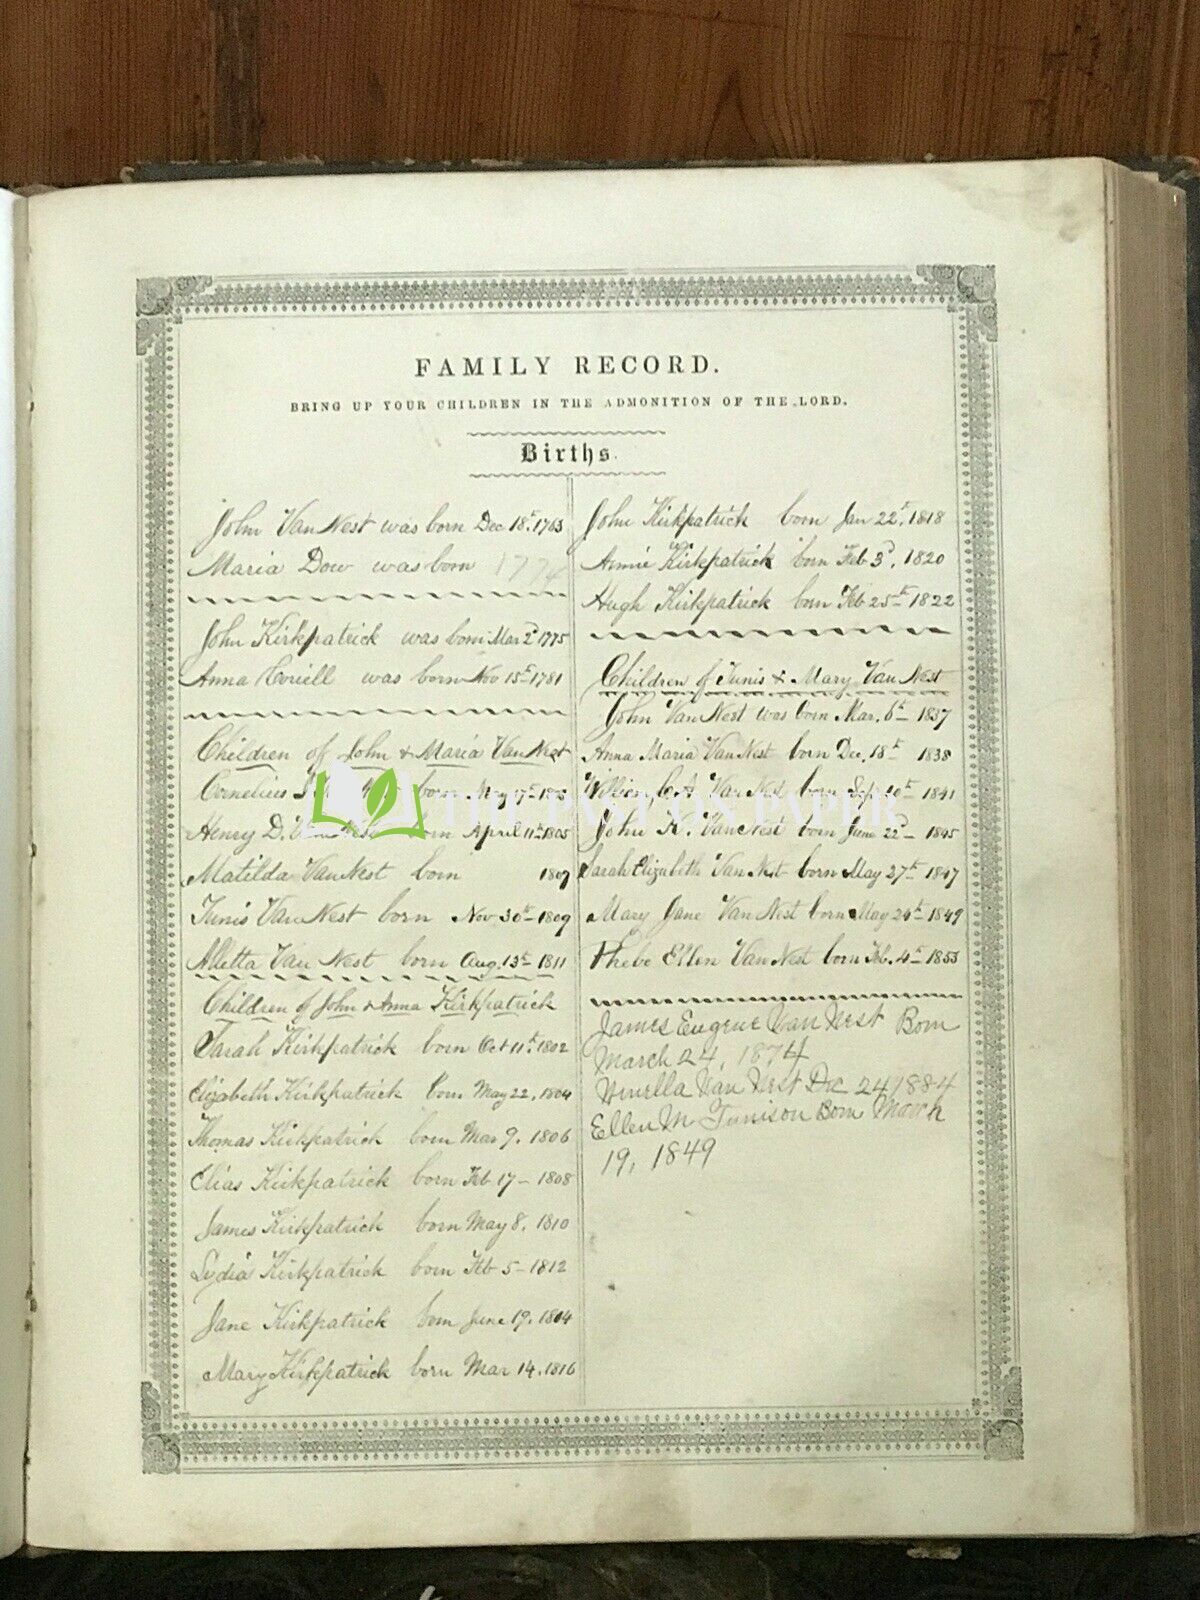 FAMILY RECORD.
BRING UP YOUR CHILDREN IN THE ADMONITION OF THE LORD.
Births.
John Van Nest was born Dec 18t. 1763
Maria Dow was born 1774
John Kirkpatrick was born Mar 2d 1775
Anna Coriell was born Nov 15t 1781
Children of John & Maria Van Nest
Cornelius born May 17t
Henry D. Van Nest born April 11t 1805
Matilda Van Nest born 1807
Tunis Van Nest born Nov. 30t 1809
Alletta Van Nest born Aug. 13t 1811
Children of John & Anna Kirkpatrick
Sarah Kirkpatrick born Oct 11t. 1802
Elizabeth Kirkpatrick born May 22, 1804
Thomas Kirkpatrick born Mar 9. 1806
Elias Kirkpatrick born Feb 17 - 1808
James Kirkpatrick born May 8. 1810
Lydia Kirkpatrick born Feb 5 - 1812
Jane Kirkpatrick born June 19. 1804
Mary Kirkpatrick born Mar 14. 1816
John Kirkpatrick born Jan 22t. 1818
Annie Kirkpatrick born Feb 3d, 1820
Hugh Kirkpatrick born Feb 25t 1822
Children of Tunis & Mary Van Nest
John Van Nest was born Mar. 6t 1837
Anna Maria Van Nest born Dec, 18t 1838
A. Van Nest born Sept 1841
John K. Van Nest born June 22d - 1845
Sarah Elizabeth Van Nest born May 27t 1847
Mary Jane Van Nest born May 24t 1849
Phebe Ellen Van Nest born Feb. 4t 1853
James Eugene Van Nest Born
March 24, 1874
Van Nest Dec 24 1884
Ellen M Tunison Born March
19, 1849